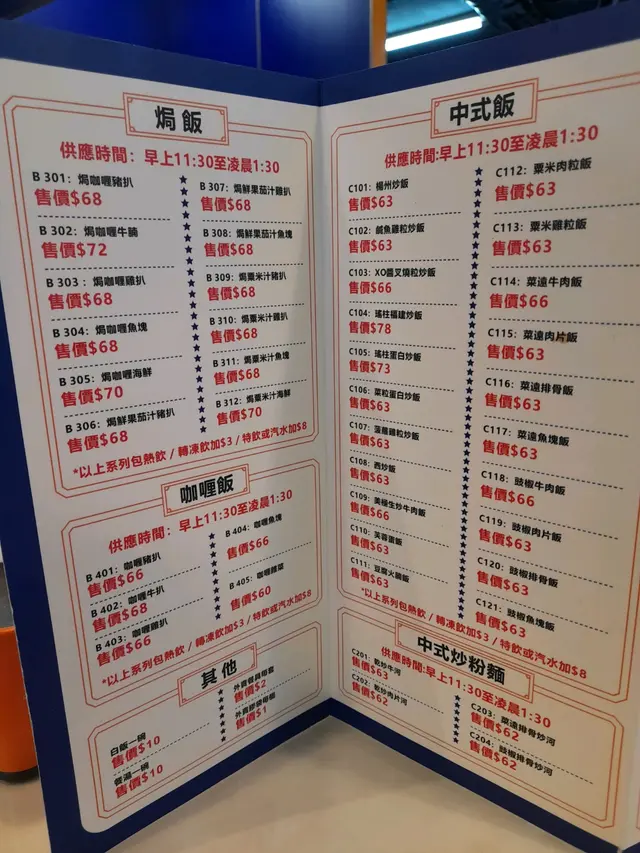 焗飯
供應時間：早上11:30至凌晨1:30
B 301：焗咖喱豬扒
售價$68
B 302：焗咖喱牛腩
售價$72
B 303：焗咖喱雞扒
售價$68
B 304：焗咖喱魚塊
售價$68
B 305：焗咖喱海鮮
售價$70
B 306：焗鮮果茄汁豬扒
售價$68
B 307：焗鮮果茄汁雞扒
售價$68
B 308：焗鮮果茄汁魚塊
售價$68
B 309：焗粟米汁豬扒
售價$68
B 310：焗粟米汁雞扒
售價$68
B 311：焗粟米汁魚塊
售價$68
B 312：焗粟米汁海鮮
售價$70
*以上系列包熱飲 / 轉凍飲加$3 / 特飲或汽水加$8
咖喱飯
供應時間：早上11:30至凌晨1:30
B 401：咖喱豬扒
售價$66
B 402：咖喱牛扒
售價$68
B 403：咖喱雞扒
售價$66
B 404：咖喱魚塊
售價$66
B 405：咖喱雜菜
售價$60
*以上系列包熱飲 / 轉凍飲加$3 / 特飲或汽水加$8
其他
白飯一碗
售價$10
餐湯一碗
售價$10
外賣餐具每套
售價$2
外賣膠袋每個
售價$1
中式飯
供應時間:早上11:30至凌晨1:30
C101：楊州炒飯
售價$63
C102：鹹魚雞粒炒飯
售價$63
C103：XO醬叉燒粒炒飯
售價$66
C104：瑤柱福建炒飯
售價$78
C105：瑤柱蛋白炒飯
售價$73
C106：菜粒蛋白炒飯
售價$63
C107：菠蘿雞粒炒飯
售價$63
C108：西炒飯
售價$63
C109：美極生炒牛肉飯
售價$66
C110：芙蓉蛋飯
售價$63
C111：豆腐火腩飯
售價$63
C112：粟米肉粒飯
售價$63
C113：粟米雞粒飯
售價$63
C114：菜遠牛肉飯
售價$66
C115：菜遠肉片飯
售價$63
C116：菜遠排骨飯
售價$63
C117：菜遠魚塊飯
售價$63
C118：豉椒牛肉飯
售價$66
C119：豉椒肉片飯
售價$63
C120：豉椒排骨飯
售價$63
C121：豉椒魚塊飯
售價$63
*以上系列包熱飲 / 轉凍飲加$3 / 特飲或汽水加$8
中式炒粉麵
供應時間:早上11:30至凌晨1:30
C201：乾炒牛河
售價$63
C202：乾炒肉片河
售價$62
C203：菜遠排骨炒河
售價$62
C204：豉椒排骨炒河
售價$62